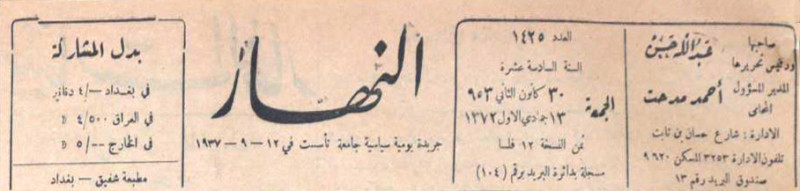 صاحبها
ورئيس تحريرها
عبدالله حسن
المدير المسؤول
المحامي
أحمد مدحت
الادارة : شارع حسان بن ثابت
تلفون الادارة ٣٢٥٣ المسكن ٩٦٢٠
صندوق البريد رقم ١٣
العدد ١٤٢٥
السنة السادسة عشرة
الجمعة
٣٠ كانون الثاني ٩٥٣
١٣ جمادي الاول ١٣٧٢
ثمن النسخة ١٢ فلسا
مسجلة بدائرة البريد برقم (١٠٤)
النهار
جريدة يومية سياسية جامعة تأست في ١٢ – ٩ – ١٩٣٧
بدل المشاركة
في بغداد ٤/٠٠ دنانير
في العراق ٤/٥٠٠ D
في الخارج ٥/٠٠ D
مطبعة شفيق – بغداد